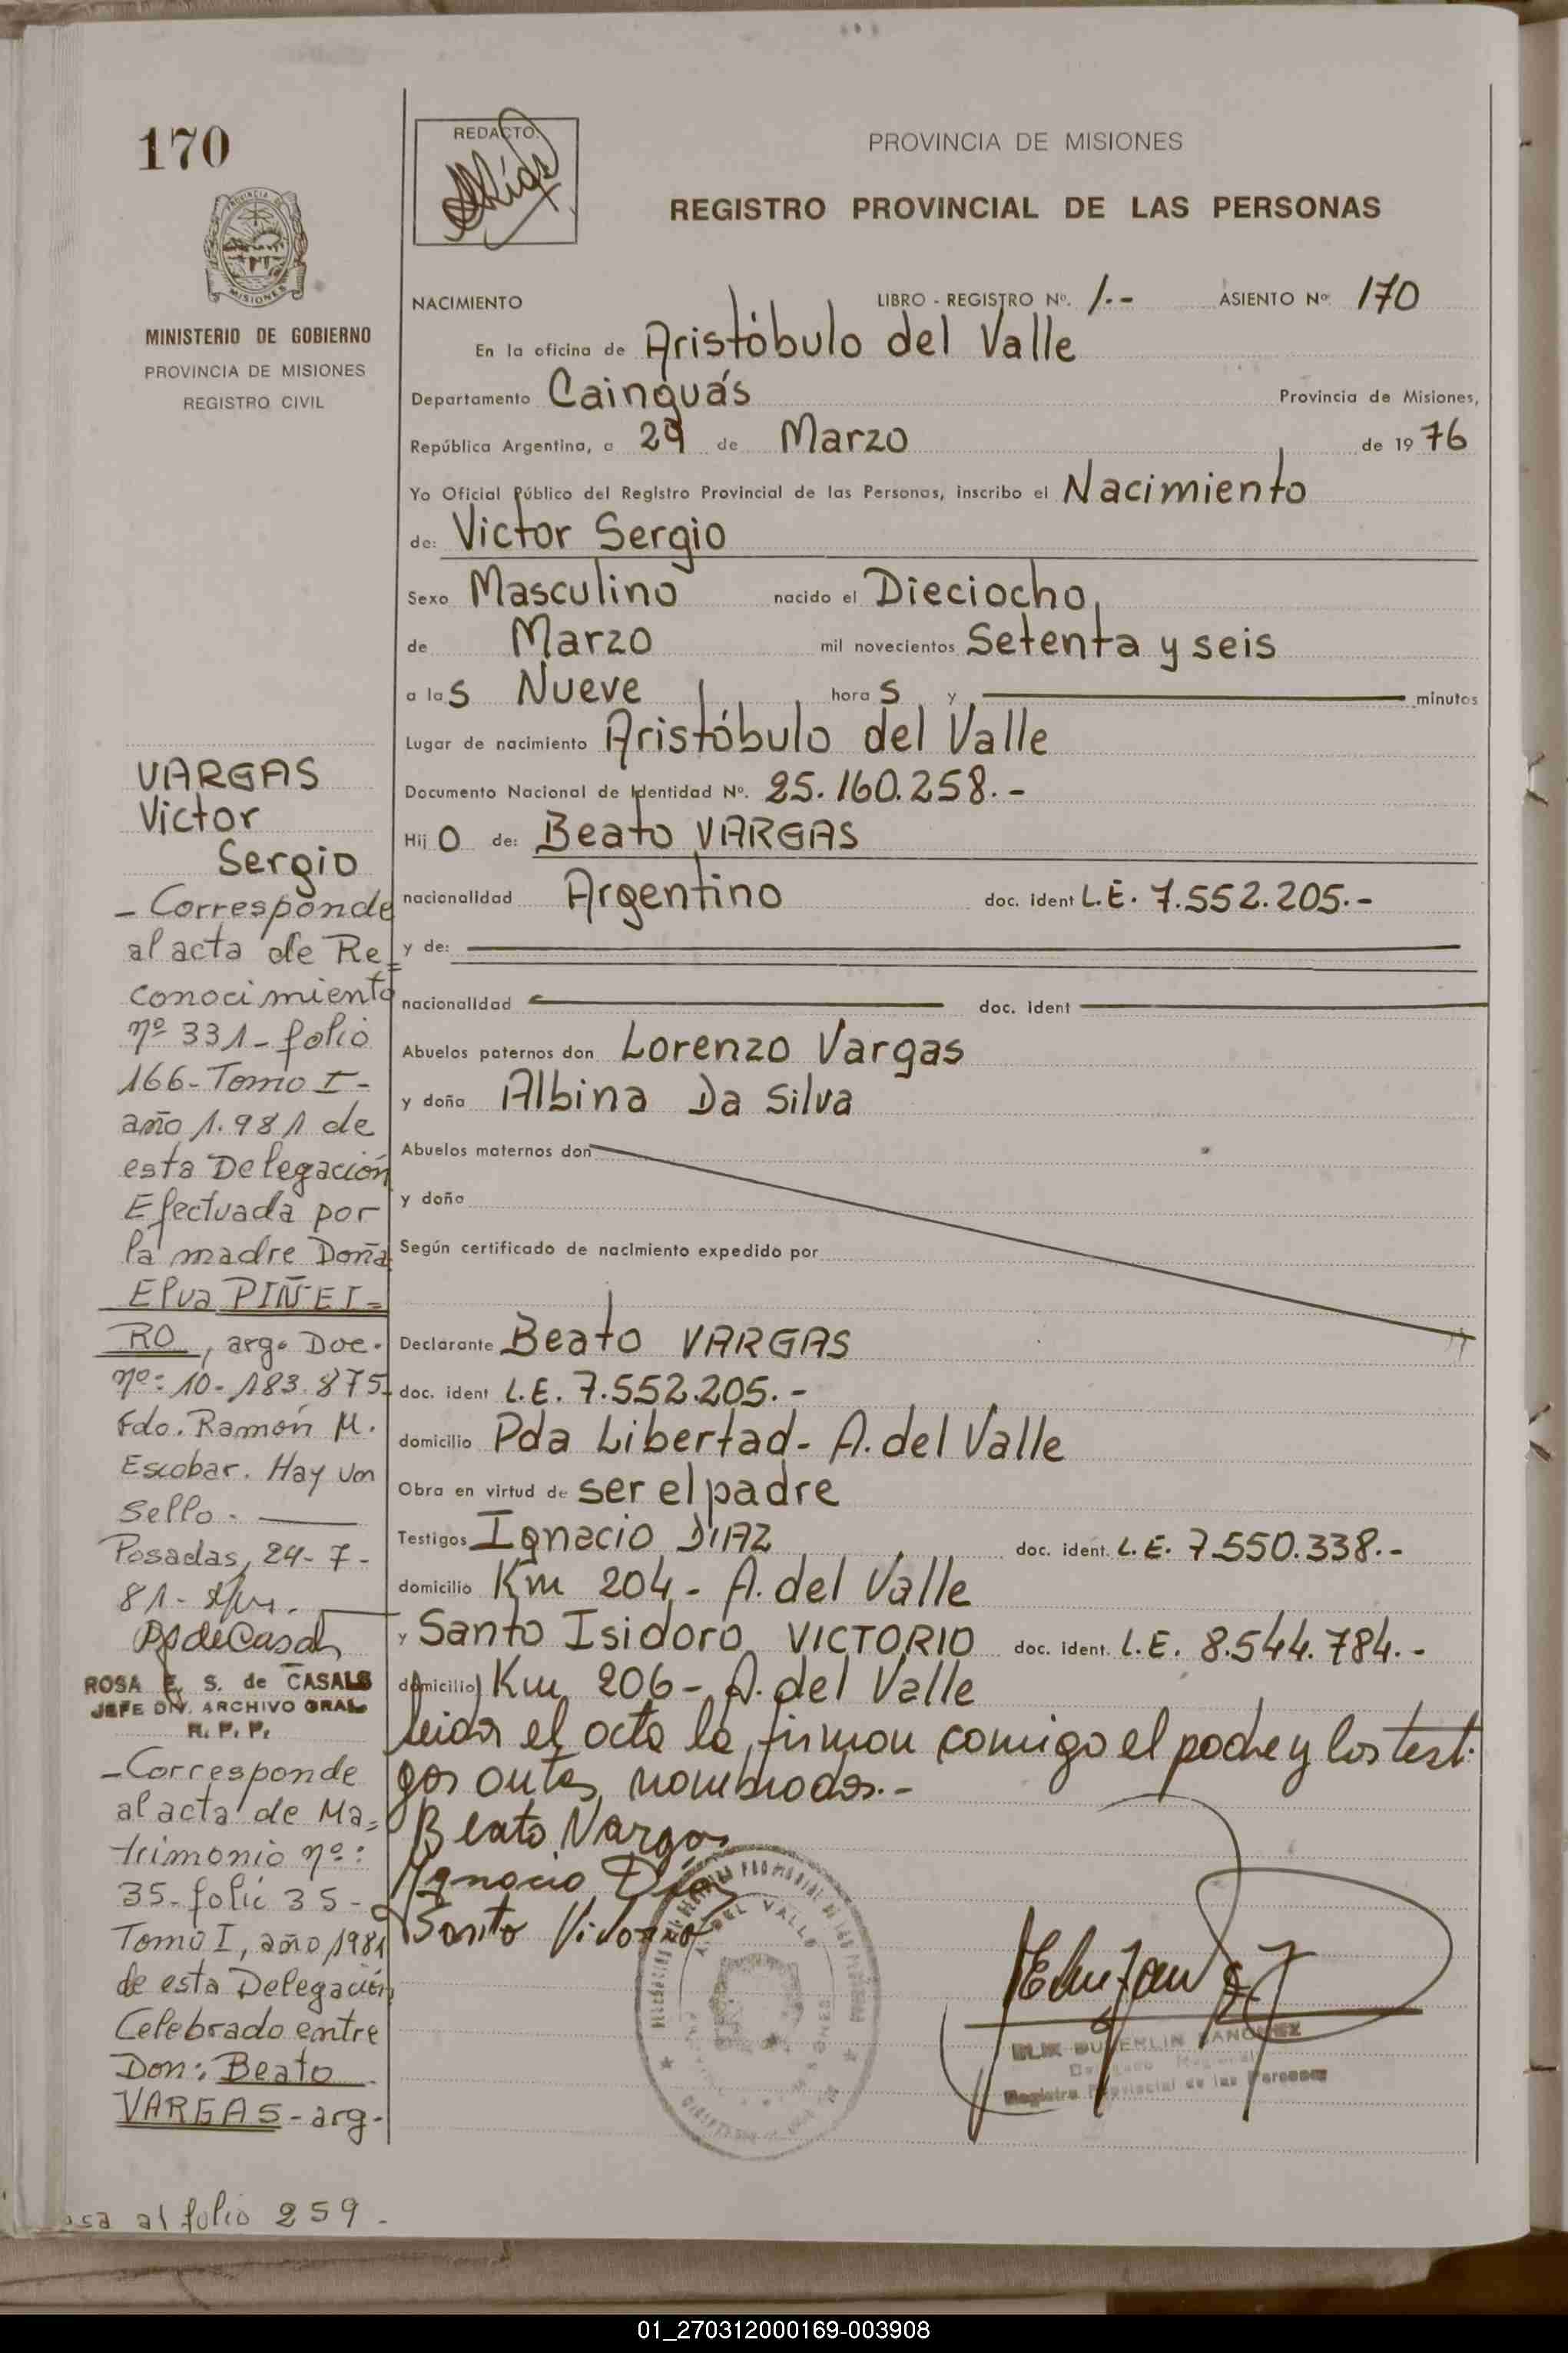 170
MINISTERIO DE GOBIERNO
PROVINCIA DE MISIONES
REGISTRO CIVIL
REDACTO:
PROVINCIA DE MISIONES
REGISTRO PROVINCIAL DE LAS PERSONAS
NACIMIENTO LIBRO - REGISTRO Nº. 1.- ASIENTO Nº 170
En la oficina de Aristóbulo del Valle
Departamento Cainguás Provincia de Misiones,
República Argentina, a 29 de Marzo de 1976
Yo Oficial Público del Registro Provincial de las Personas, inscribo el Nacimiento
de: Victor Sergio
Sexo Masculino nacido el Dieciocho
de Marzo mil novecientos Setenta y seis
a las Nueve horas y minutos
Lugar de nacimiento Aristóbulo del Valle
Documento Nacional de Identidad Nº. 25.160.258.-
Hijo de: Beato VARGAS
nacionalidad Argentino doc. ident L.E. 7.552.205.-
y de:
nacionalidad doc. ident
Abuelos paternos don Lorenzo Vargas
y doña Albina Da Silva
Abuelos maternos don
y doña
Según certificado de nacimiento expedido por
Declarante Beato VARGAS
doc. ident L.E. 7.552.205.-
domicilio Pda Libertad- A. del Valle
Obra en virtud de ser el padre
Testigos Ignacio DIAZ doc. ident. L.E. 7.550.338.-
domicilio Km 204 - A. del Valle
y Santo Isidoro VICTORIO doc. ident. L.E. 8.544.784.-
domicilio Km 206 - A. del Valle
leida el acta la firman comigo el padre y los testi
gos antes nombrados.-
Beato Vargas
Ignacio Díaz
Santo
SANCHEZ
Registro Provincial de las Personas
VARGAS
Victor
Sergio
- Corresponde
al acta de Re=
conocimiento
nº 331 - folio
166 - Tomo I -
año 1.981 de
esta Delegación
Efectuada por
la madre Doña
Elva PIÑEI=
RO, arg. Doc.
nº: 10.183.875
Fdo. Ramón M.
Escobar. Hay un
sello.-
Posadas, 24-7-
81-
ROSA E. S. de CASALS
JEFE DIV. ARCHIVO GRAL.
R. P. P.
- Corresponde
al acta de Ma=
trimonio nº:
35 - folio 35 -
Tomo I, año 1981
de esta Delegación
Celebrado entre
Don: Beato
VARGAS - arg-
al folio 259 -
01_270312000169-003908